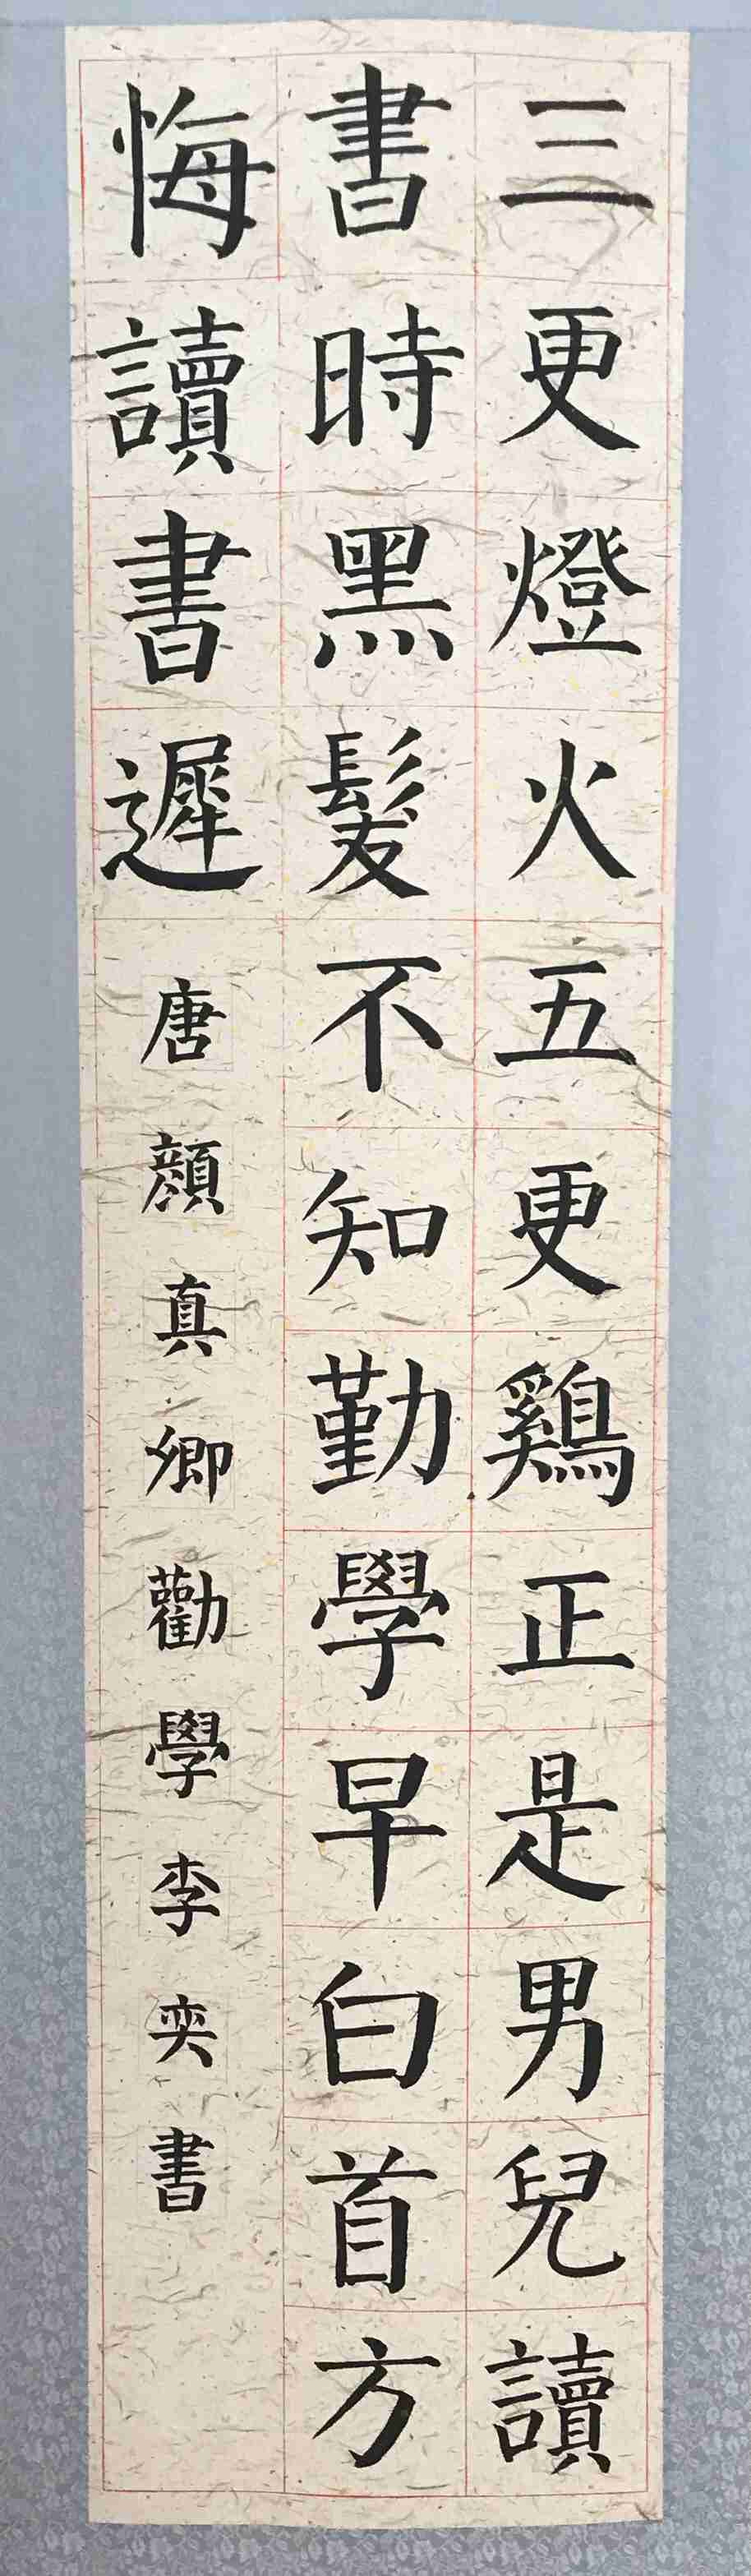 三更燈火五更鷄正是男兒讀
書時黑髮不知勤學早白首方
悔讀書遲唐顏真卿勸學李奕書